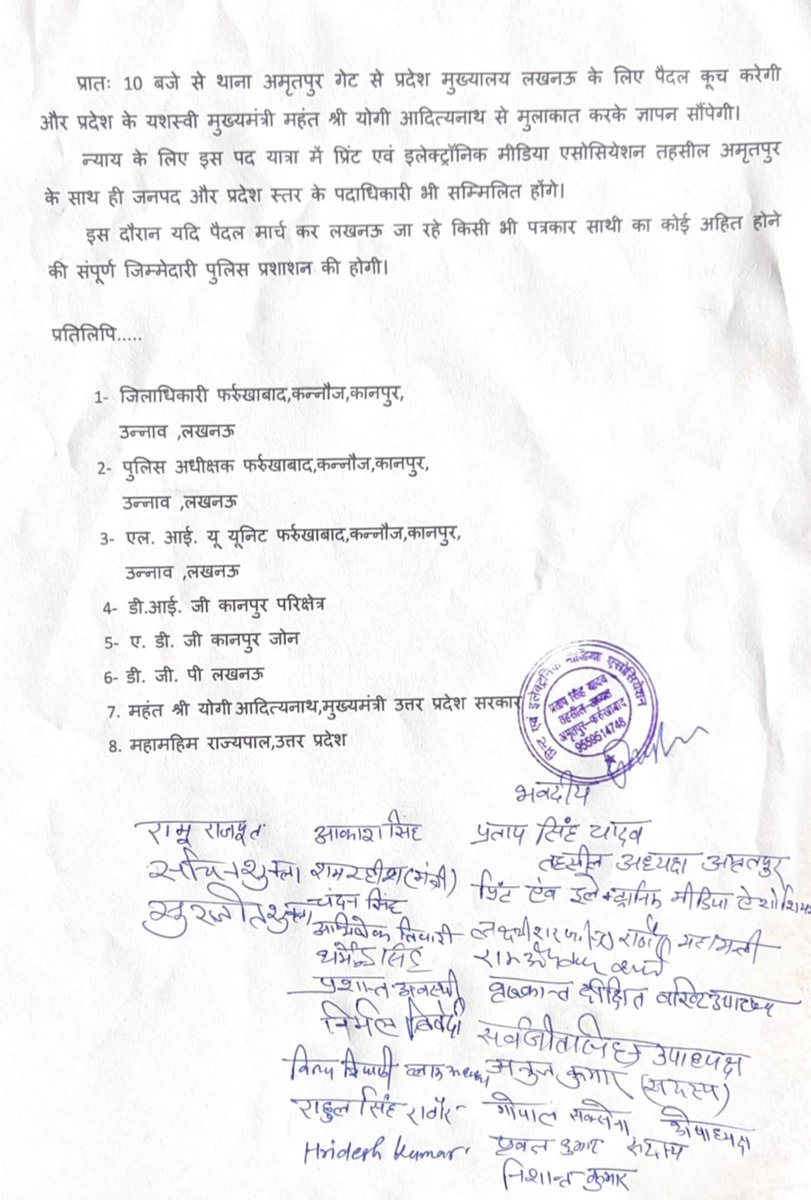 प्रातः 10 बजे से थाना अमृतपुर गेट से प्रदेश मुख्यालय लखनऊ के लिए पैदल कूच करेगी
और प्रदेश के यशस्वी मुख्यमंत्री महंत श्री योगी आदित्यनाथ से मुलाकात करके ज्ञापन सौंपेगी।
न्याय के लिए इस पद यात्रा में प्रिंट एवं इलेक्ट्रॉनिक मीडिया एसोसियेशन तहसील अमृतपुर
के साथ ही जनपद और प्रदेश स्तर के पदाधिकारी भी सम्मिलित होंगे।
इस दौरान यदि पैदल मार्च कर लखनऊ जा रहे किसी भी पत्रकार साथी का कोई अहित होने
की संपूर्ण जिम्मेदारी पुलिस प्रशाशन की होगी।
प्रतिलिपि.....
1- जिलाधिकारी फर्रुखाबाद,कन्नौज,कानपुर,
उन्नाव ,लखनऊ
2- पुलिस अधीक्षक फर्रुखाबाद,कन्नौज,कानपुर,
उन्नाव ,लखनऊ
3- एल. आई. यू यूनिट फर्रुखाबाद,कन्नौज,कानपुर,
उन्नाव ,लखनऊ
4- डी.आई. जी कानपुर परिक्षेत्र
5- ए. डी. जी कानपुर जोन
6- डी. जी. पी लखनऊ
7. महंत श्री योगी आदित्यनाथ,मुख्यमंत्री उत्तर प्रदेश सरकार
8. महामहिम राज्यपाल,उत्तर प्रदेश
प्रिन्ट एवं इलेक्ट्रनिक मीडिया एसोसियेशन
प्रताप सिंह यादव
तहसील-अध्यक्ष
अमृतपुर-फर्रुखाबाद
9559514748
भवदीय
रामू राजपूत आकाश सिंह प्रताप सिंह यादव
तहसील अध्यक्ष अमृतपुर
सचिन शुक्ला (मंत्री) प्रिंट एंव मीडिया
सुरजीत शुक्ला चंदन सिंह
अभिषेक तिवारी राठौर महामंत्री
धर्मेन्द्र सिंह
प्रशान्त अवस्थी दीक्षित
निर्मल द्विवेदी सर्वजीत सिंह उपाध्यक्ष
कुमार (सदस्य)
राहुल सिंह राठौर गोपाल सक्सेना
Hridesh Kumar. कुमार सदस्य
निशान्त कुमार